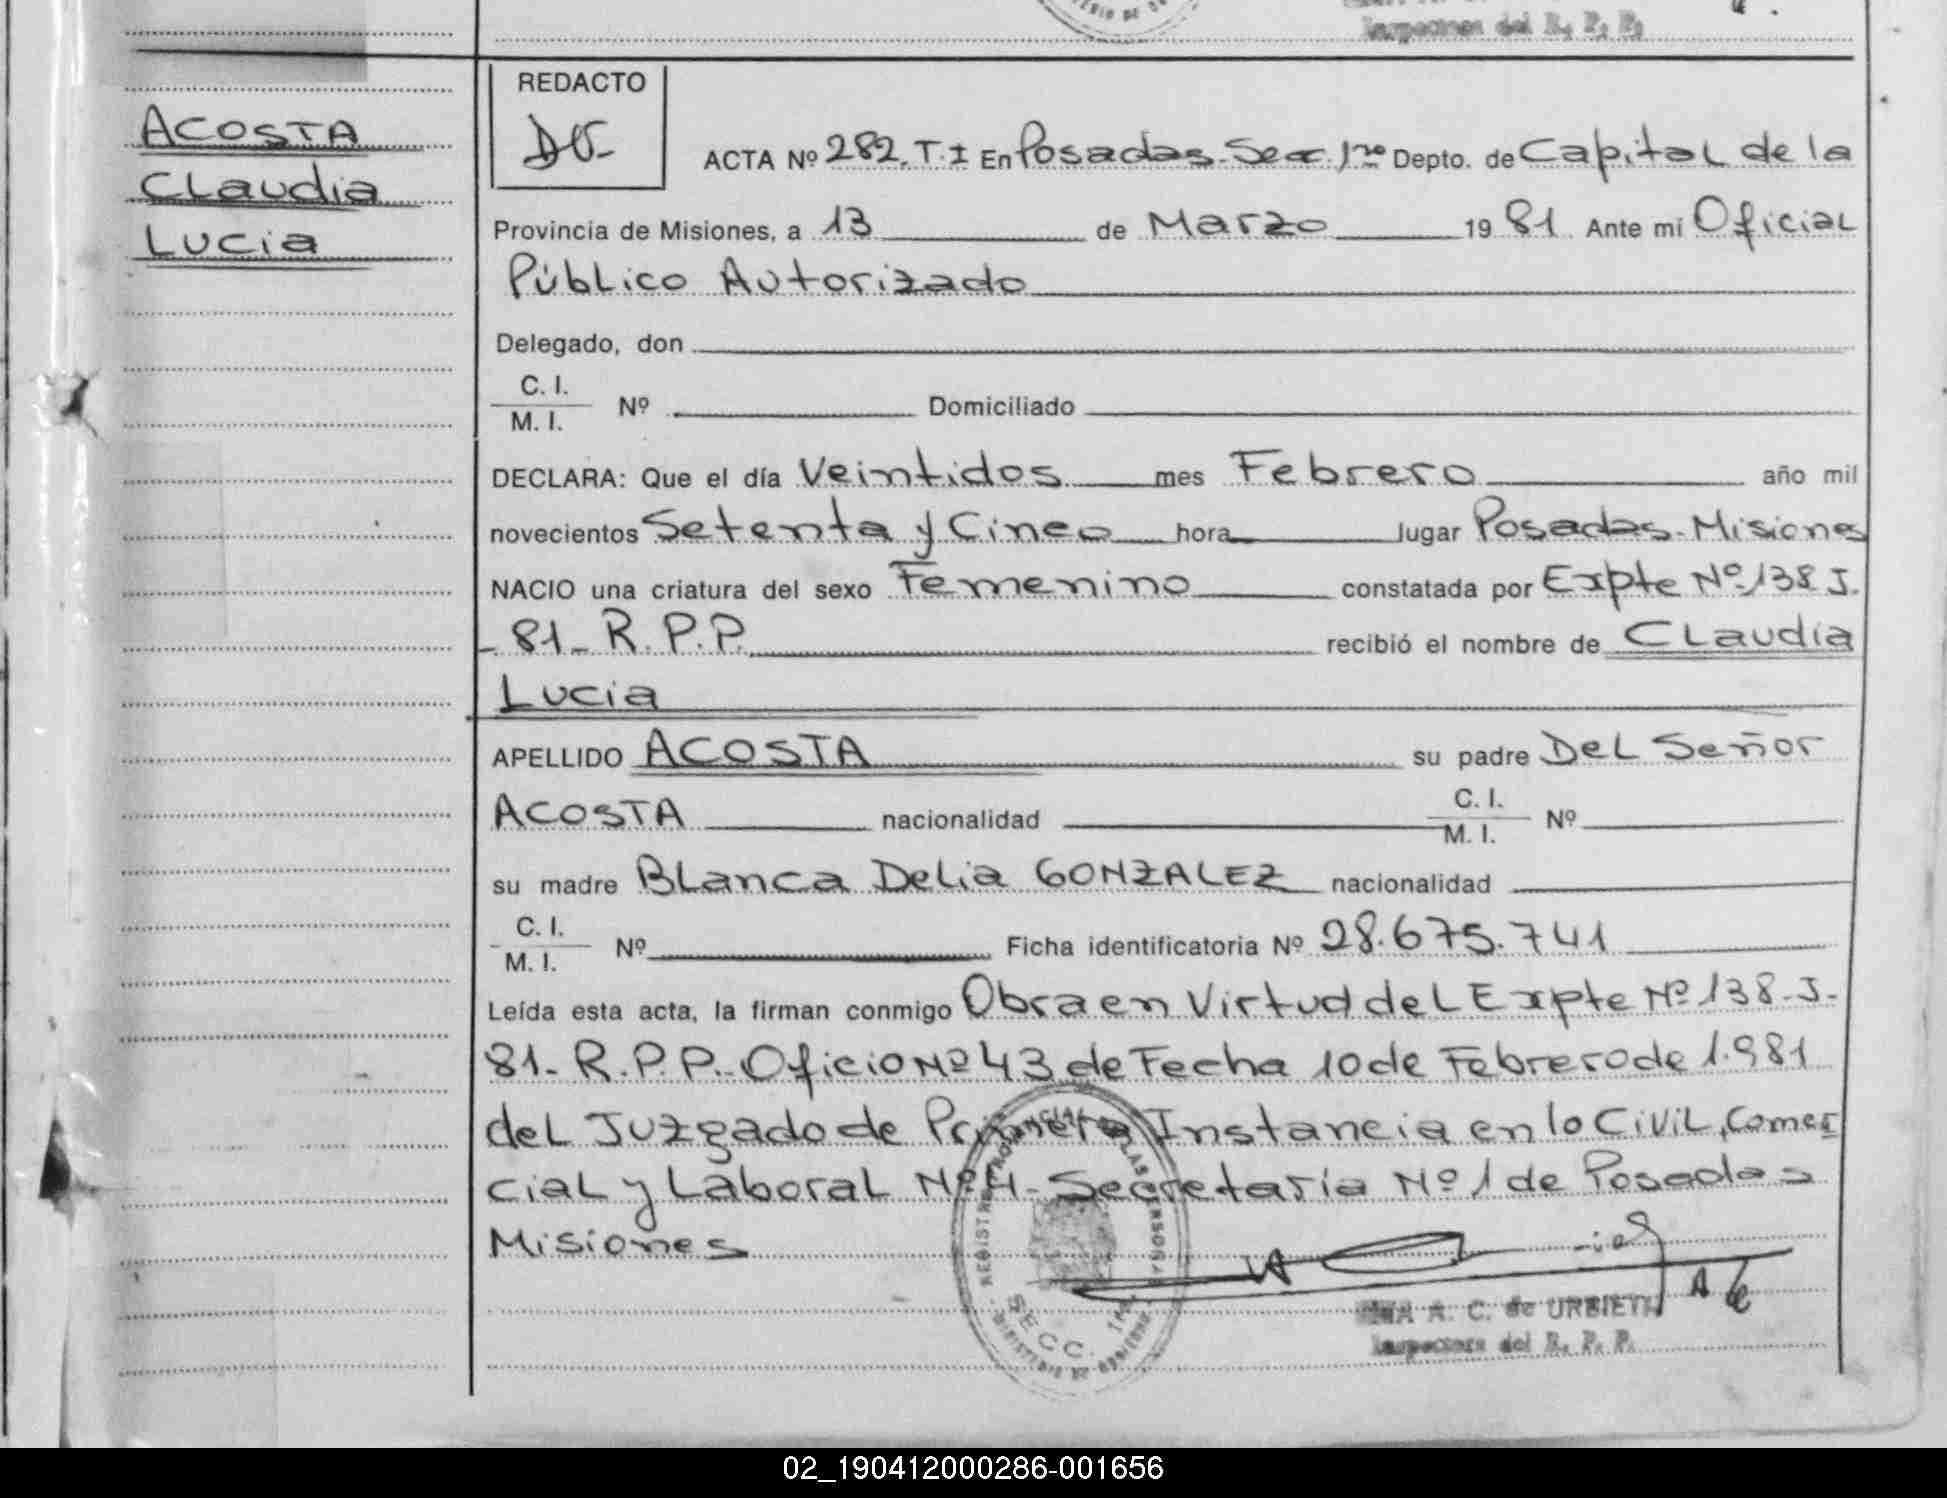 Inspectora del R. P. P.
ACOSTA
CLaudia
Lucia
REDACTO
ACTA Nº 282. T. I En Posadas. Secc. 1ra Depto. de Capital de la
Provincia de Misiones, a 13 de Marzo 19 81. Ante mí Oficial
Público Autorizado
Delegado, don
C. I.
M. I.
Nº Domiciliado
DECLARA: Que el día Veintidos mes Febrero año mil
novecientos Setenta y Cinco hora lugar Posadas. Misiones
NACIO una criatura del sexo Femenino constatada por Expte Nº 138 J.
- 81 - R. P. P. recibió el nombre de CLaudia
Lucia
APELLIDO ACOSTA su padre Del Señor
ACOSTA nacionalidad C. I.
M. I. Nº
su madre BLanca Delia GONZALEZ nacionalidad
C. I.
M. I. Nº Ficha identificatoria Nº 28.675.741
Leída esta acta, la firman conmigo Obra en Virtud del Expte Nº 138 - J -
81 - R. P. P. - Oficio Nº 43 de Fecha 10 de Febrero de 1.981
del Juzgado de Primera Instancia en lo Civil, Comer
cial y Laboral Nº 4 - Secretaría Nº 1 de Posadas
Misiones
A. C. de URBIETA
Inspectora del R. P. P.
REGISTRO PROVINCIAL DE LAS PERSONAS
SECC. 1ra
MINISTERIO DE GOBIERNO
02_190412000286-001656